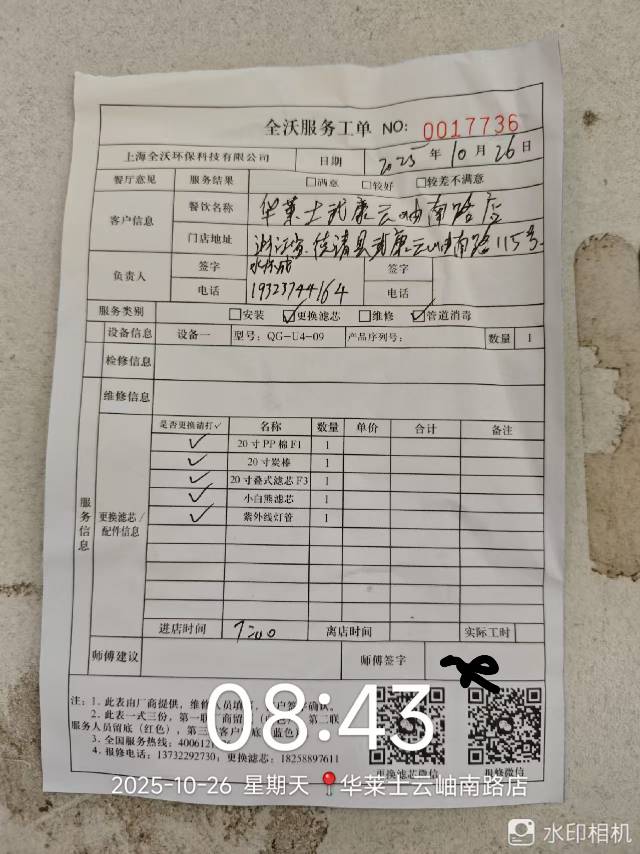 全沃服务工单 NO: 0017736
上海全沃环保科技有限公司 日期 2025年10月26日
餐厅意见 服务结果 □满意 □较好 □较差不满意
客户信息 餐饮名称 华莱士武康云岫南路店
门店地址 浙江省德清县武康云岫南路115号
负责人 签字 签字
电话 19323744164 电话
服务类别 □安装 ☑更换滤芯 □维修 ☑管道消毒
设备信息 设备一 型号: QG-U4-09 产品序列号: 数量 1
检修信息
维修信息
服务信息
更换滤芯/配件信息
是否更换请打✓ 名称 数量 单价 合计 备注
✓ 20寸PP棉F1 1
✓ 20寸炭棒 1
✓ 20寸叠式滤芯F3 1
✓ 小白熊滤芯 1
✓ 紫外线灯管 1
进店时间 7:00 离店时间 实际工时
师傅建议 师傅签字
注: 1. 此表由厂商提供, 维修人员填 户签字确认.
2. 此表一式三份, 第一联厂商留 第二联
服务人员留底(红色), 第三 客户 底 蓝色
3. 全国服务热线: 400612
4. 报修电话: 13732292730; 更换滤芯: 18258897611
更换滤芯微信 报修微信
08:43
2025-10-26 星期天 华莱士云岫南路店
水印相机